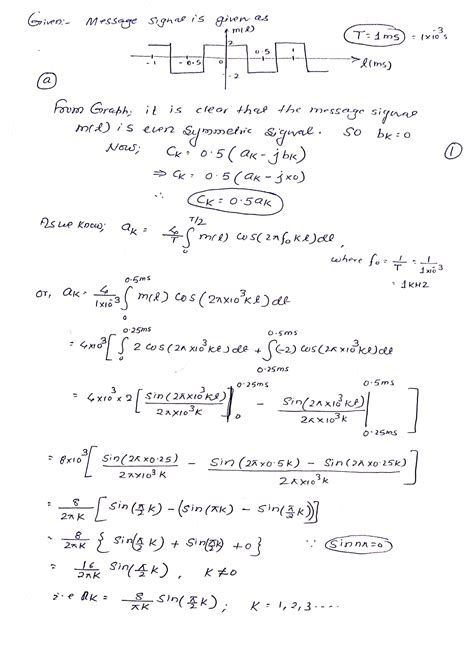 Given:- Message signal is given as
m(t)
T = 1ms = 1x10⁻³s
2
-1 -0.5 0 0.5 1 t(ms)
-2
(a)
From Graph; it is clear that the message signal
m(t) is even symmetric signal. So bk = 0
Now; Ck = 0.5 (ak - jbk) (1)
⇒ Ck = 0.5 (ak - jx0)
∴ Ck = 0.5ak
As we know; ak = 4/T ∫₀^(T/2) m(t) cos(2πf₀kt)dt,
where f₀ = 1/T = 1/1x10⁻³
= 1kHz
or, ak = 4/1x10⁻³ ∫₀^(0.5ms) m(t) cos(2πx10³kt)dt
= 4x10³ [∫₀^(0.25ms) 2 cos(2πx10³kt)dt + ∫_(0.25ms)^(0.5ms) (-2) cos(2πx10³kt)dt
= 4x10³x2 [sin(2πx10³kt)/2πx10³k |₀^(0.25ms) - sin(2πx10³kt)/2πx10³k |_(0.25ms)^(0.5ms)]
= 8x10³ [sin(2πx0.25)/2πx10³k - sin(2πx0.5k) - sin(2πx0.25k)/2πx10³k]
= 8/2πk [sin(π/2 k) - (sin(πk) - sin(π/2 k))]
= 8/2πk {sin(π/2 k) + sin(π/2 k) + 0} ∵ sin nπ = 0
= 16/2πk sin(π/2 k), k ≠ 0
i.e ak = 8/πk sin(π/2 k); k = 1, 2, 3 ....